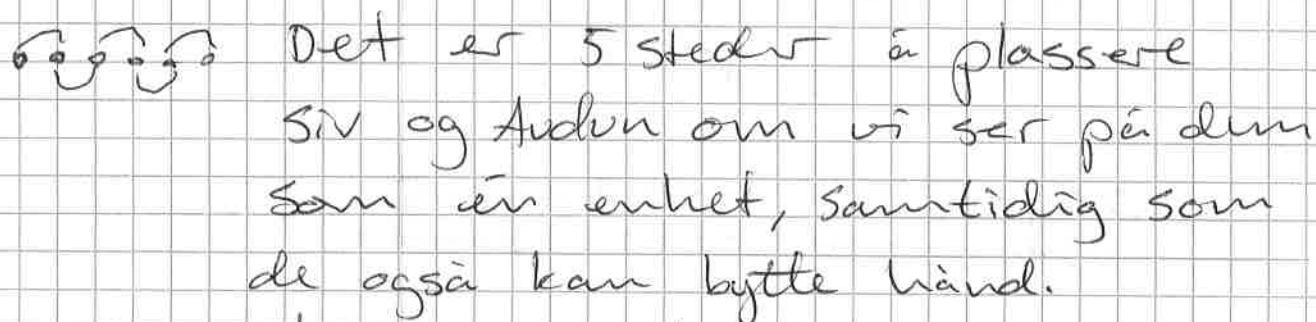 Det er 5 steder å plassere
Siv og Audun om vi ser på dem
som én enhet, samtidig som
de også kan bytte hånd.